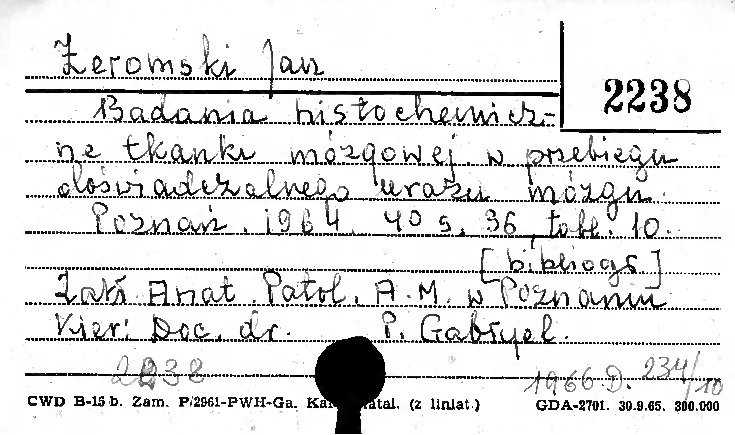 Żeromski Jan
2238
Badania histochemicz-
ne tkanki mózgowej w przebiegu
doświadczalnego urazu mózgu.
Poznań. 1964. 40 s. 36, tabl. 10.
[bibliogr.]
Zakł. Anat. Patol. A.M. w Poznaniu
Kier: Doc. dr. P. Gabryel.
2238
1966 D. 234/10
CWD B-15 b. Zam. P/2961-PWH-Ga. (z liniat.) GDA-2701. 30.9.65. 300.000